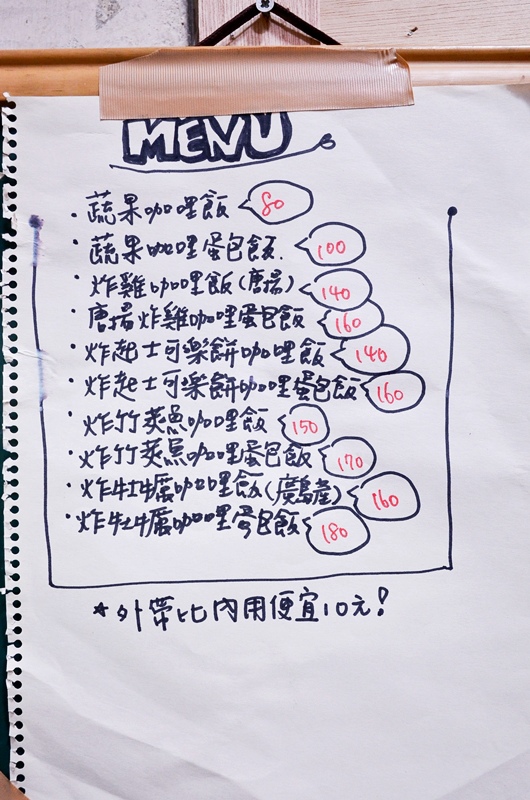 MENU
・蔬果咖哩飯 80
・蔬果咖哩蛋包飯. 100
・炸雞咖哩飯(唐揚) 140
・唐揚炸雞咖哩蛋包飯 160
・炸起士可樂餅咖哩飯 140
・炸起士可樂餅咖哩蛋包飯 160
・炸竹莢魚咖哩飯 150
・炸竹莢魚咖哩蛋包飯 170
・炸牡蠣咖哩飯(廣島產) 160
・炸牡蠣咖哩蛋包飯 180
*外帶比內用便宜10元!